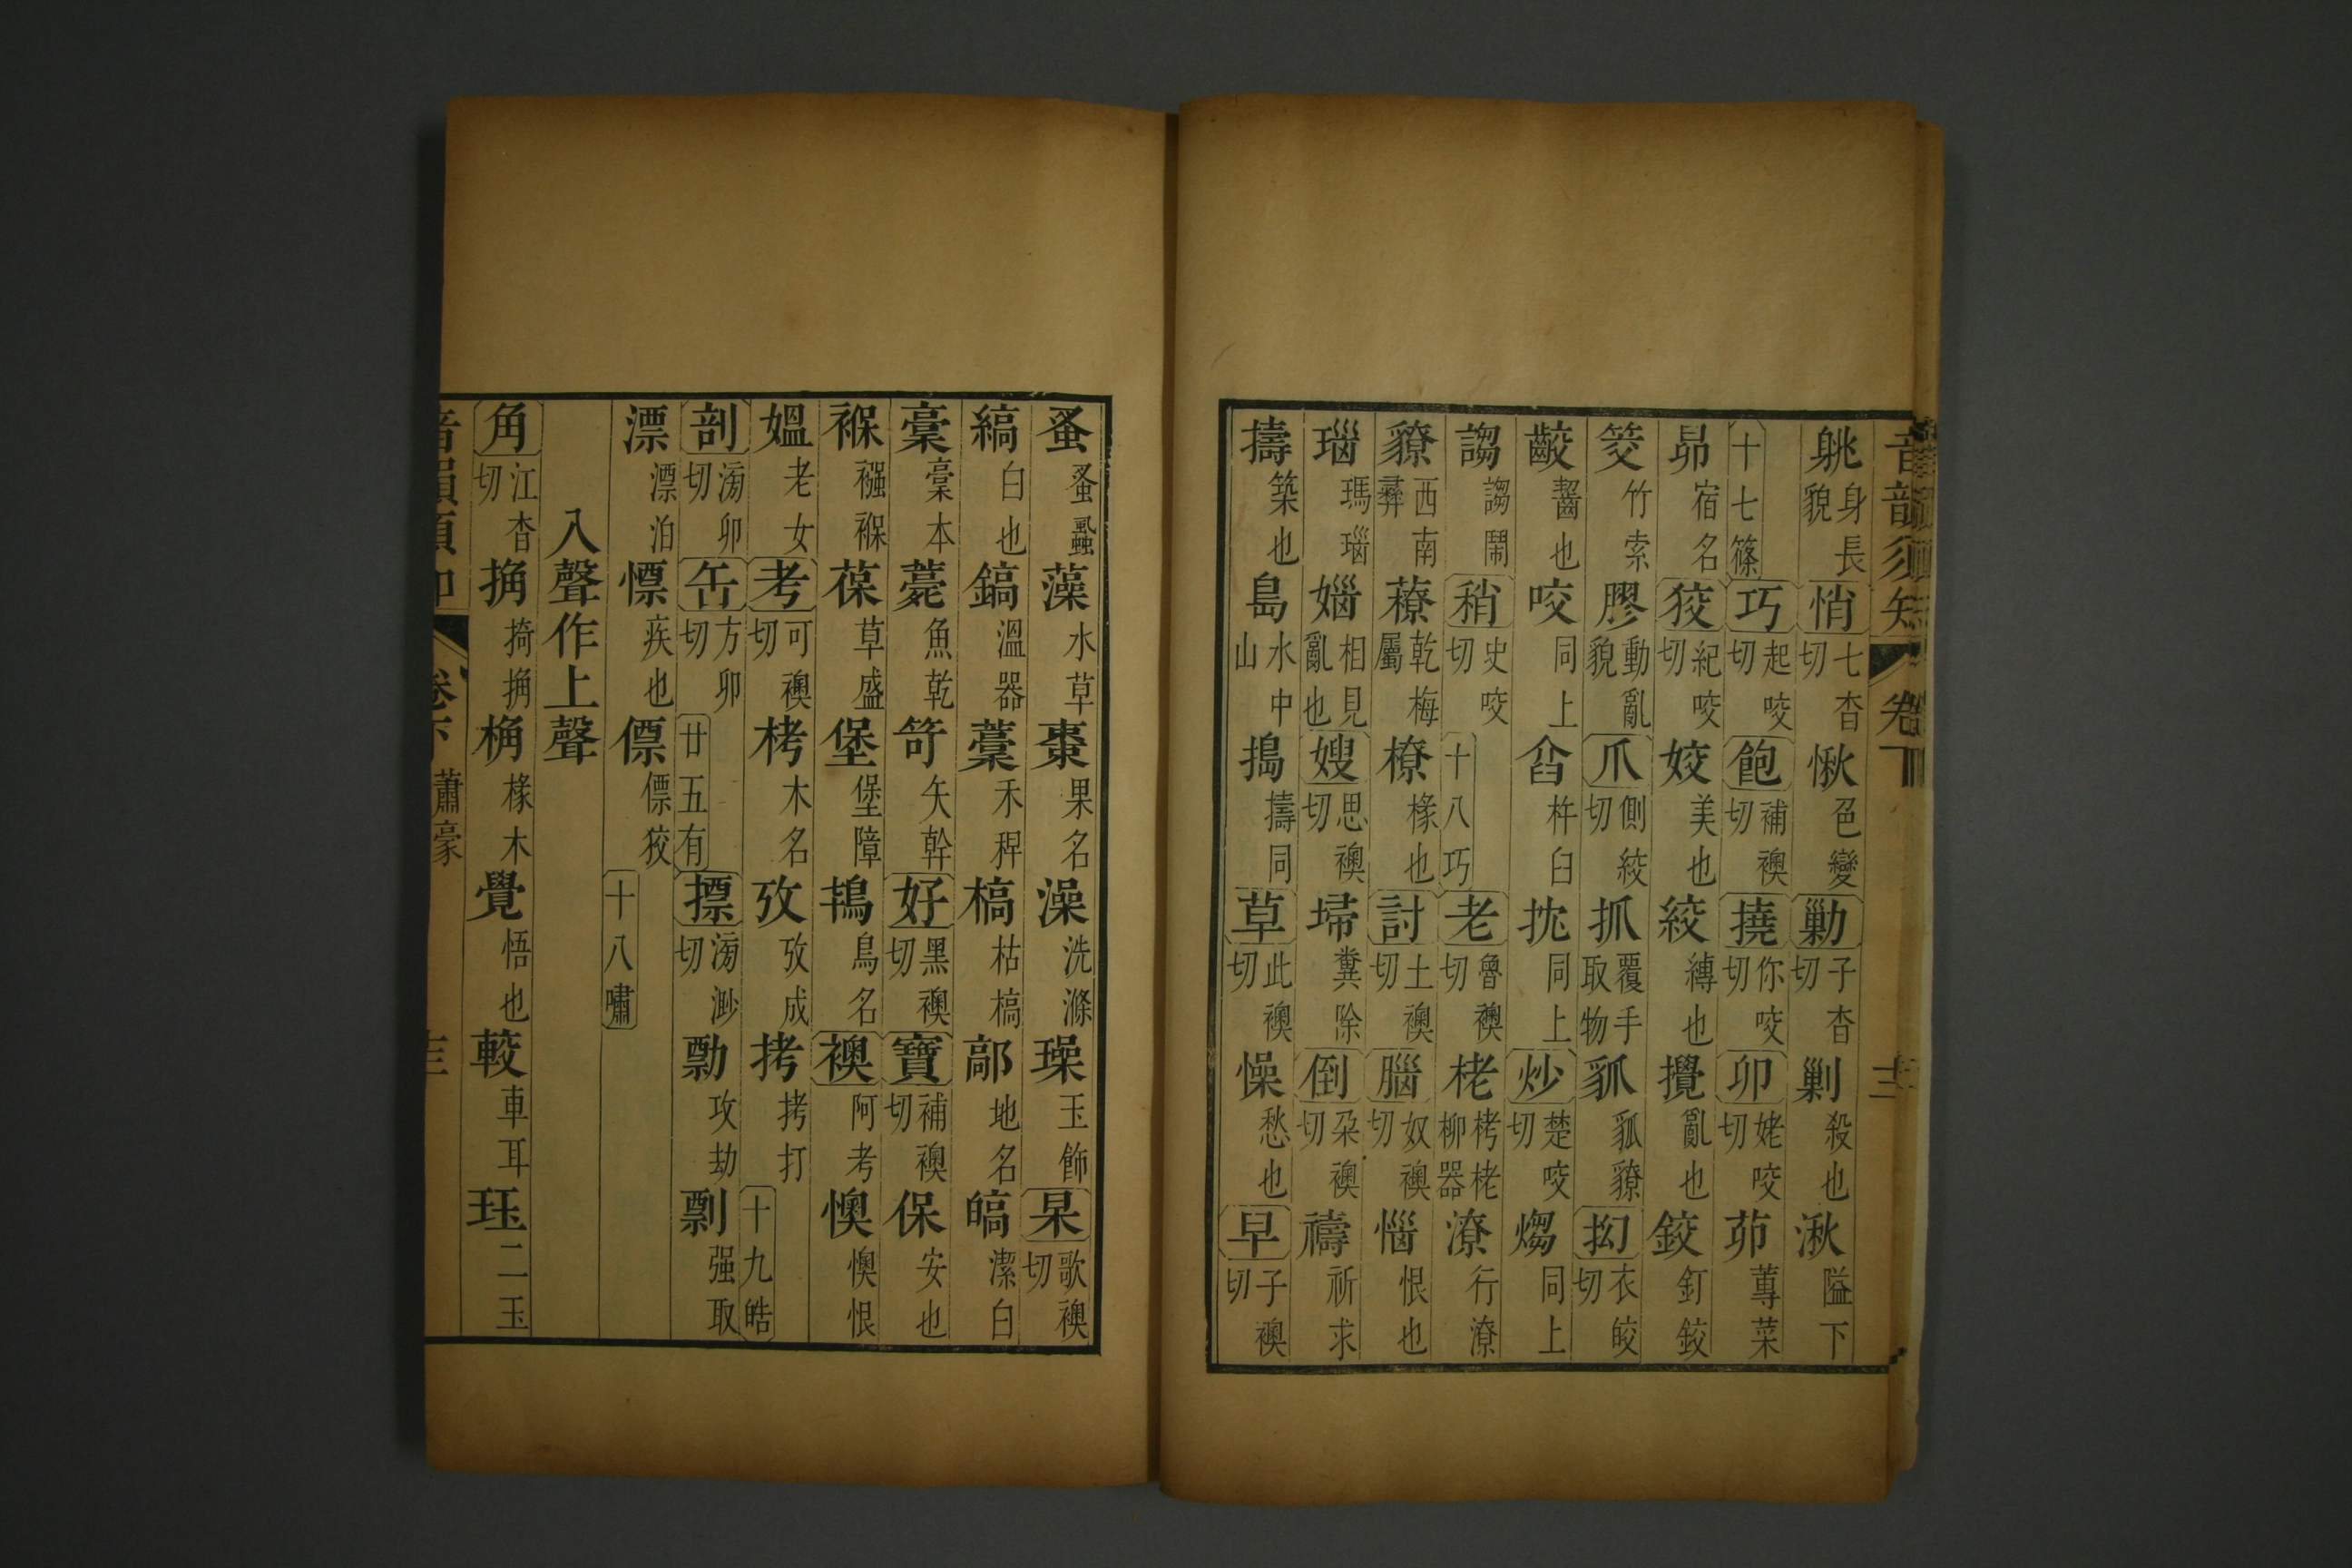 音韻須知 卷下
䠷身長貌悄七杳切愀色變勦子杳切剿殺也湫隘下
十七篠巧起咬切飽補襖切撓你咬切卯姥咬切茆蓴菜
昴宿名狡紀咬切姣美也絞縛也攪亂也鉸釘鉸
筊竹索膠動亂貌爪側絞切抓覆手取物㺒㺒獠拗衣皎切
齩齧也咬同上舀杵臼抭同上炒楚咬切煼同上
謅謅鬧稍史咬切十八巧老魯襖切栳栲栳柳器潦行潦
獠西南彞䕩乾梅屬橑椽也討土襖切腦奴襖切惱恨也
瑙瑪瑙嫐相見亂也嫂思襖切埽糞除倒朶襖切禱祈求
擣築也島水中山搗擣同草此襖切懆愁也早子襖切
蚤蚤蝨藻水草棗果名澡洗滌璪玉飾杲歌襖切
縞白也鎬溫器藁禾稈槁枯槁鄗地名皜潔白
稾稾本薧魚乾笴矢幹好黑襖切寶補襖切保安也
褓襁褓葆草盛堡堡障鴇鳥名襖阿考切懊懊恨
媼老女考可襖切栲木名攷攷成拷拷打十九皓
剖滂卯切缶方卯切廿五有摽滂渺切勡攻劫剽强取
漂漂泊慓疾也僄僄狡十八嘯
入聲作上聲
角江杳切捔掎捔桷椽木覺悟也較車耳珏二玉
卷下 蕭豪